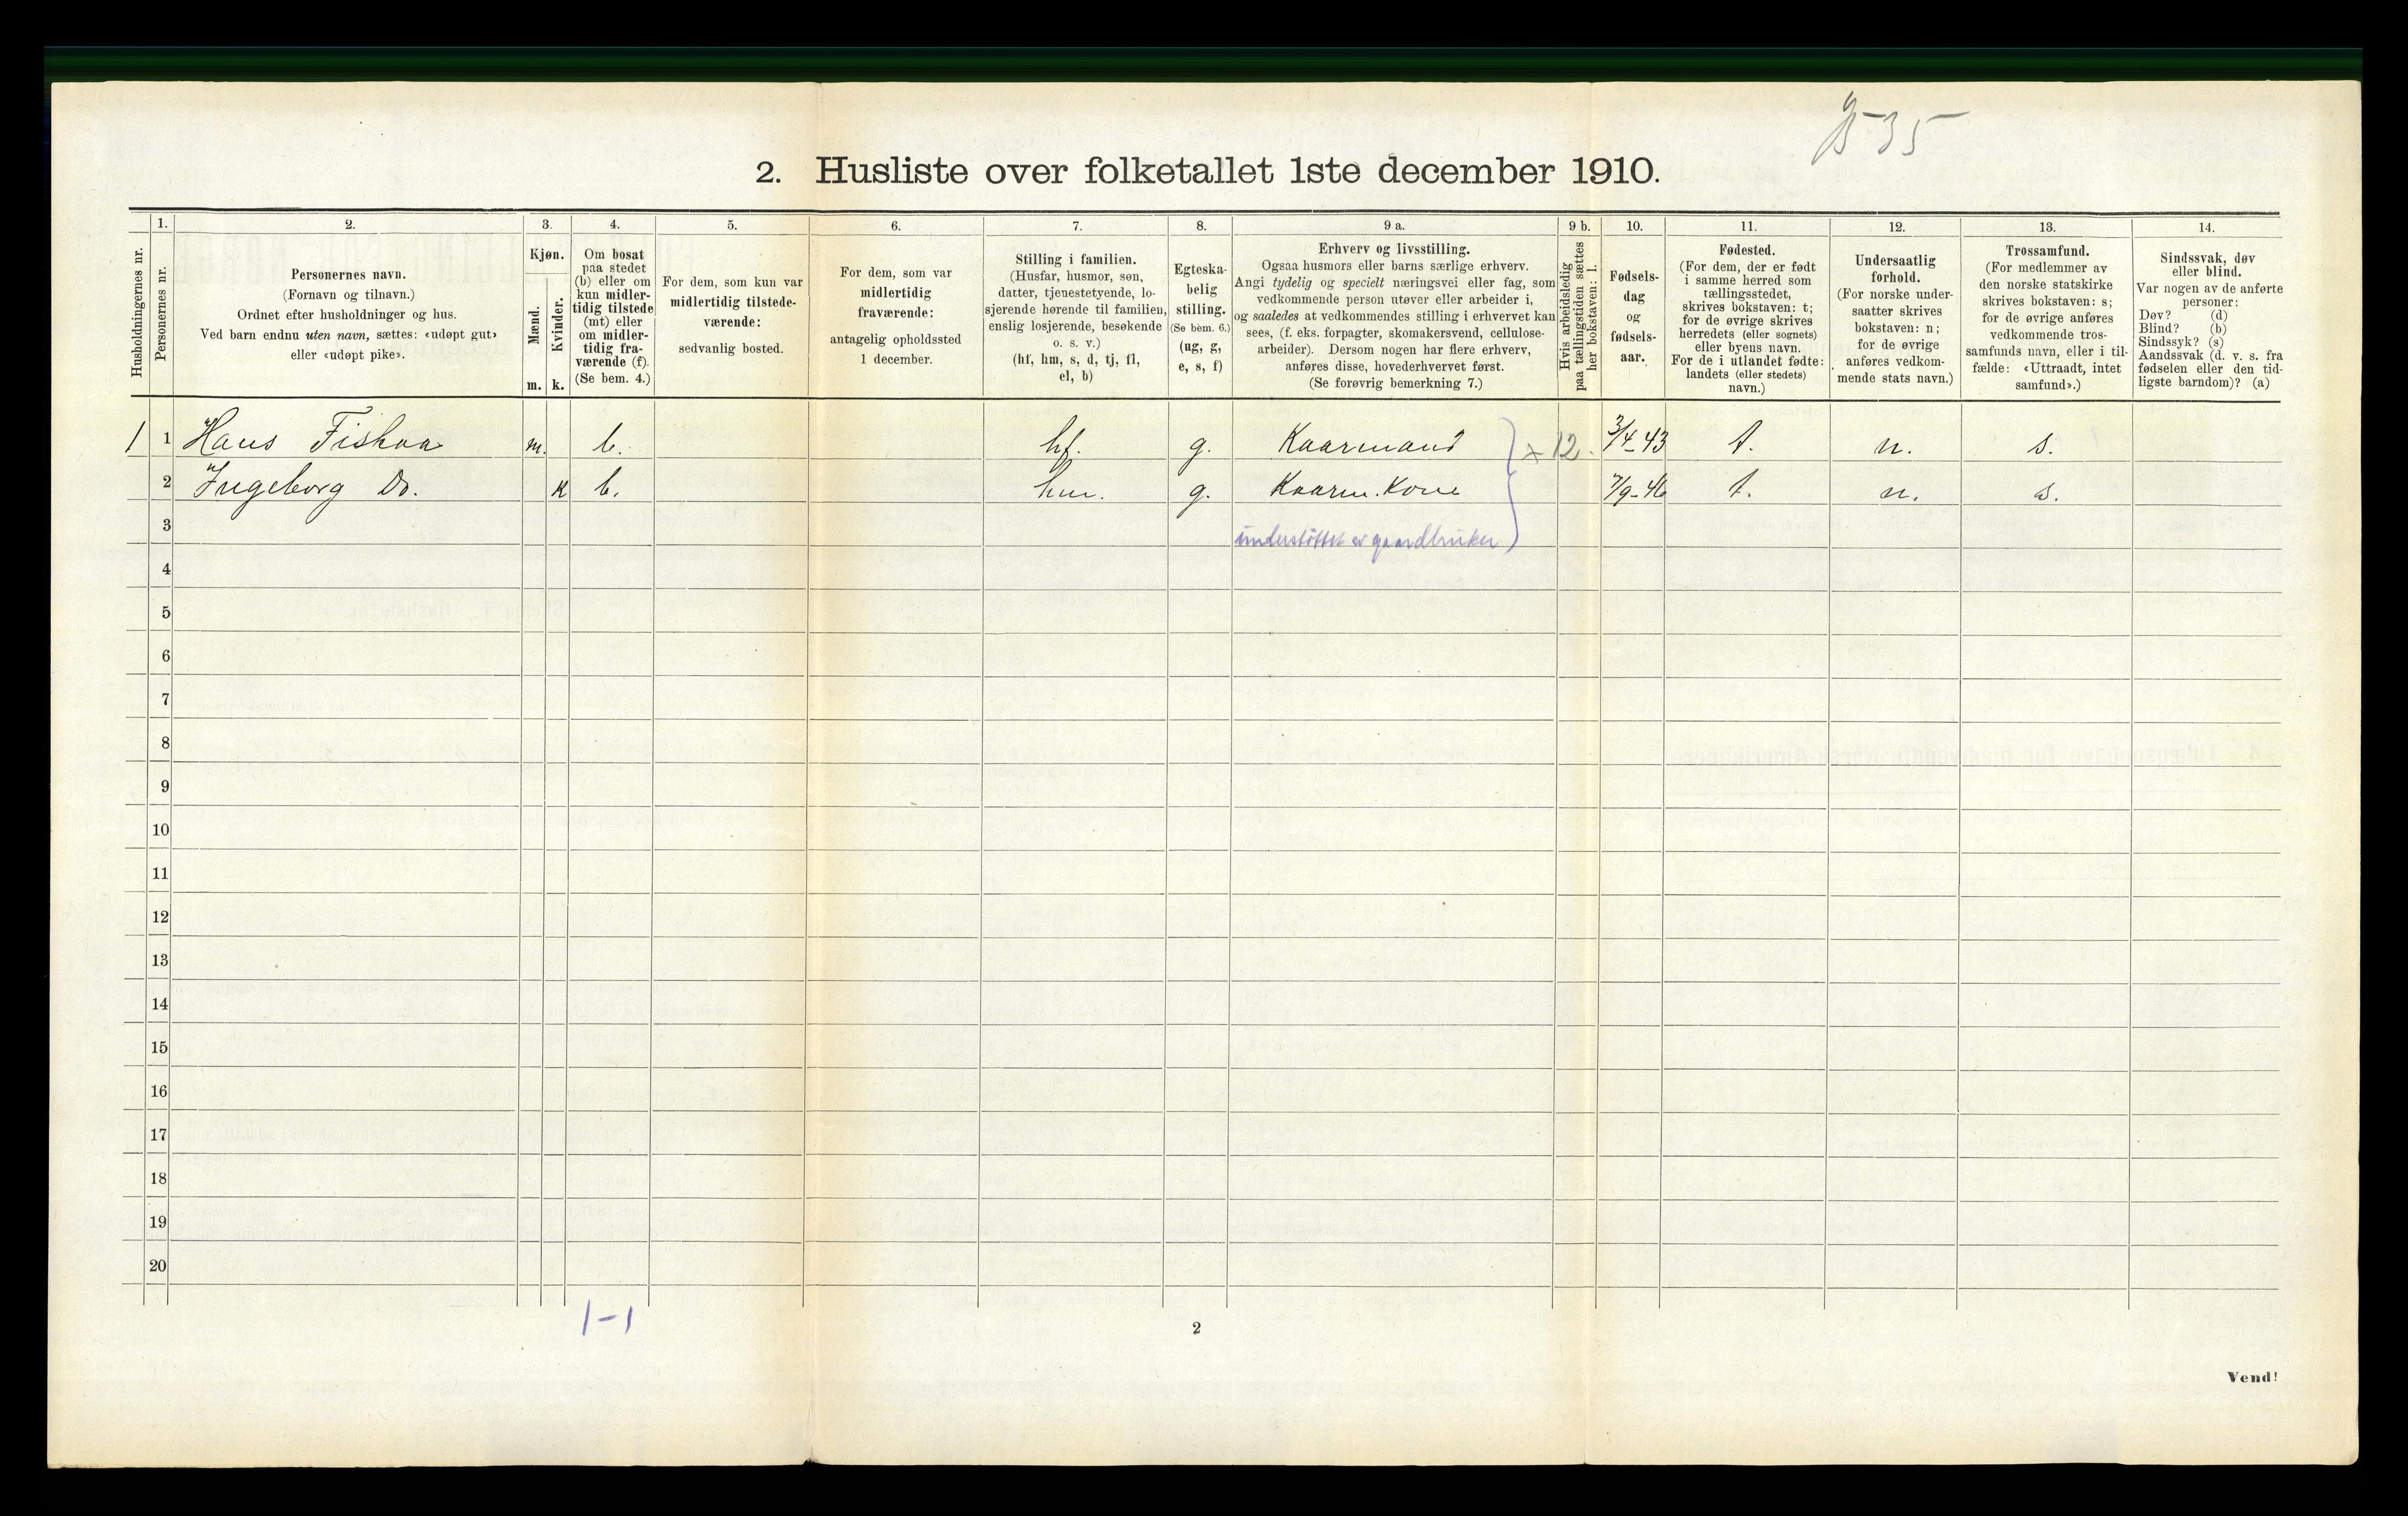 2. Husliste over folketallet 1ste december 1910.
1. 2. 3. 4. 5. 6. 7. 8. 9 a. 9 b. 10. 11. 12. 13. 14.
Husholdningernes nr.
Personernes nr.
Personernes navn.
(Fornavn og tilnavn.)
Ordnet efter husholdninger og hus.
Ved barn endnu uten navn, sættes: «udøpt gut»
eller «udøpt pike».
Kjøn.
Mænd.
Kvinder.
m. k.
Om bosat
paa stedet
(b) eller om
kun midler-
tidig tilstede
(mt) eller
om midler-
tidig fra-
værende (f).
(Se bem. 4.)
For dem, som kun var
midlertidig tilstede-
værende:
sedvanlig bosted.
For dem, som var
midlertidig
fraværende:
antagelig opholdssted
1 december.
Stilling i familien.
(Husfar, husmor, søn,
datter, tjenestetyende, lo-
sjerende hørende til familien,
enslig losjerende, besøkende
o. s. v.)
(hf, hm, s, d, tj, fl,
el, b)
Egteska-
belig
stilling.
(Se bem. 6.)
(ug, g,
e, s, f)
Erhverv og livsstilling.
Ogsaa husmors eller barns særlige erhverv.
Angi tydelig og specielt næringsvei eller fag, som
vedkommende person utøver eller arbeider i,
og saaledes at vedkommendes stilling i erhvervet kan
sees, (f. eks. forpagter, skomakersvend, cellulose-
arbeider). Dersom nogen har flere erhverv,
anføres disse, hovederhvervet først.
(Se forøvrig bemerkning 7.)
Hvis arbeidsledig
paa tællingstiden sættes
her bokstaven: l.
Fødsels-
dag
og
fødsels-
aar.
Fødested.
(For dem, der er født
i samme herred som
tællingsstedet,
skrives bokstaven: t;
for de øvrige skrives
herredets (eller sognets)
eller byens navn.
For de i utlandet fødte:
landets (eller stedets)
navn.)
Undersaatlig
forhold.
(For norske under-
saatter skrives
bokstaven: n;
for de øvrige
anføres vedkom-
mende stats navn.)
Trossamfund.
(For medlemmer av
den norske statskirke
skrives bokstaven: s;
for de øvrige anføres
vedkommende tros-
samfunds navn, eller i til-
fælde: «Uttraadt, intet
samfund».)
Sindssvak, døv
eller blind.
Var nogen av de anførte
personer:
Døv? (d)
Blind? (b)
Sindssyk? (s)
Aandssvak (d. v. s. fra
fødselen eller den tid-
ligste barndom)? (a)
1 1 Hans Fiskaa m. b. hf. g. Kaarmand x 12. 3/4-43 t. n. s.
2 Ingeborg Do. k b. hm. g. Kaarm. Kone 7/9-46 t. n. s.
3 understöttet av gaardbruker
4
5
6
7
8
9
10
11
12
13
14
15
16
17
18
19
20
1-1
2
Vend!